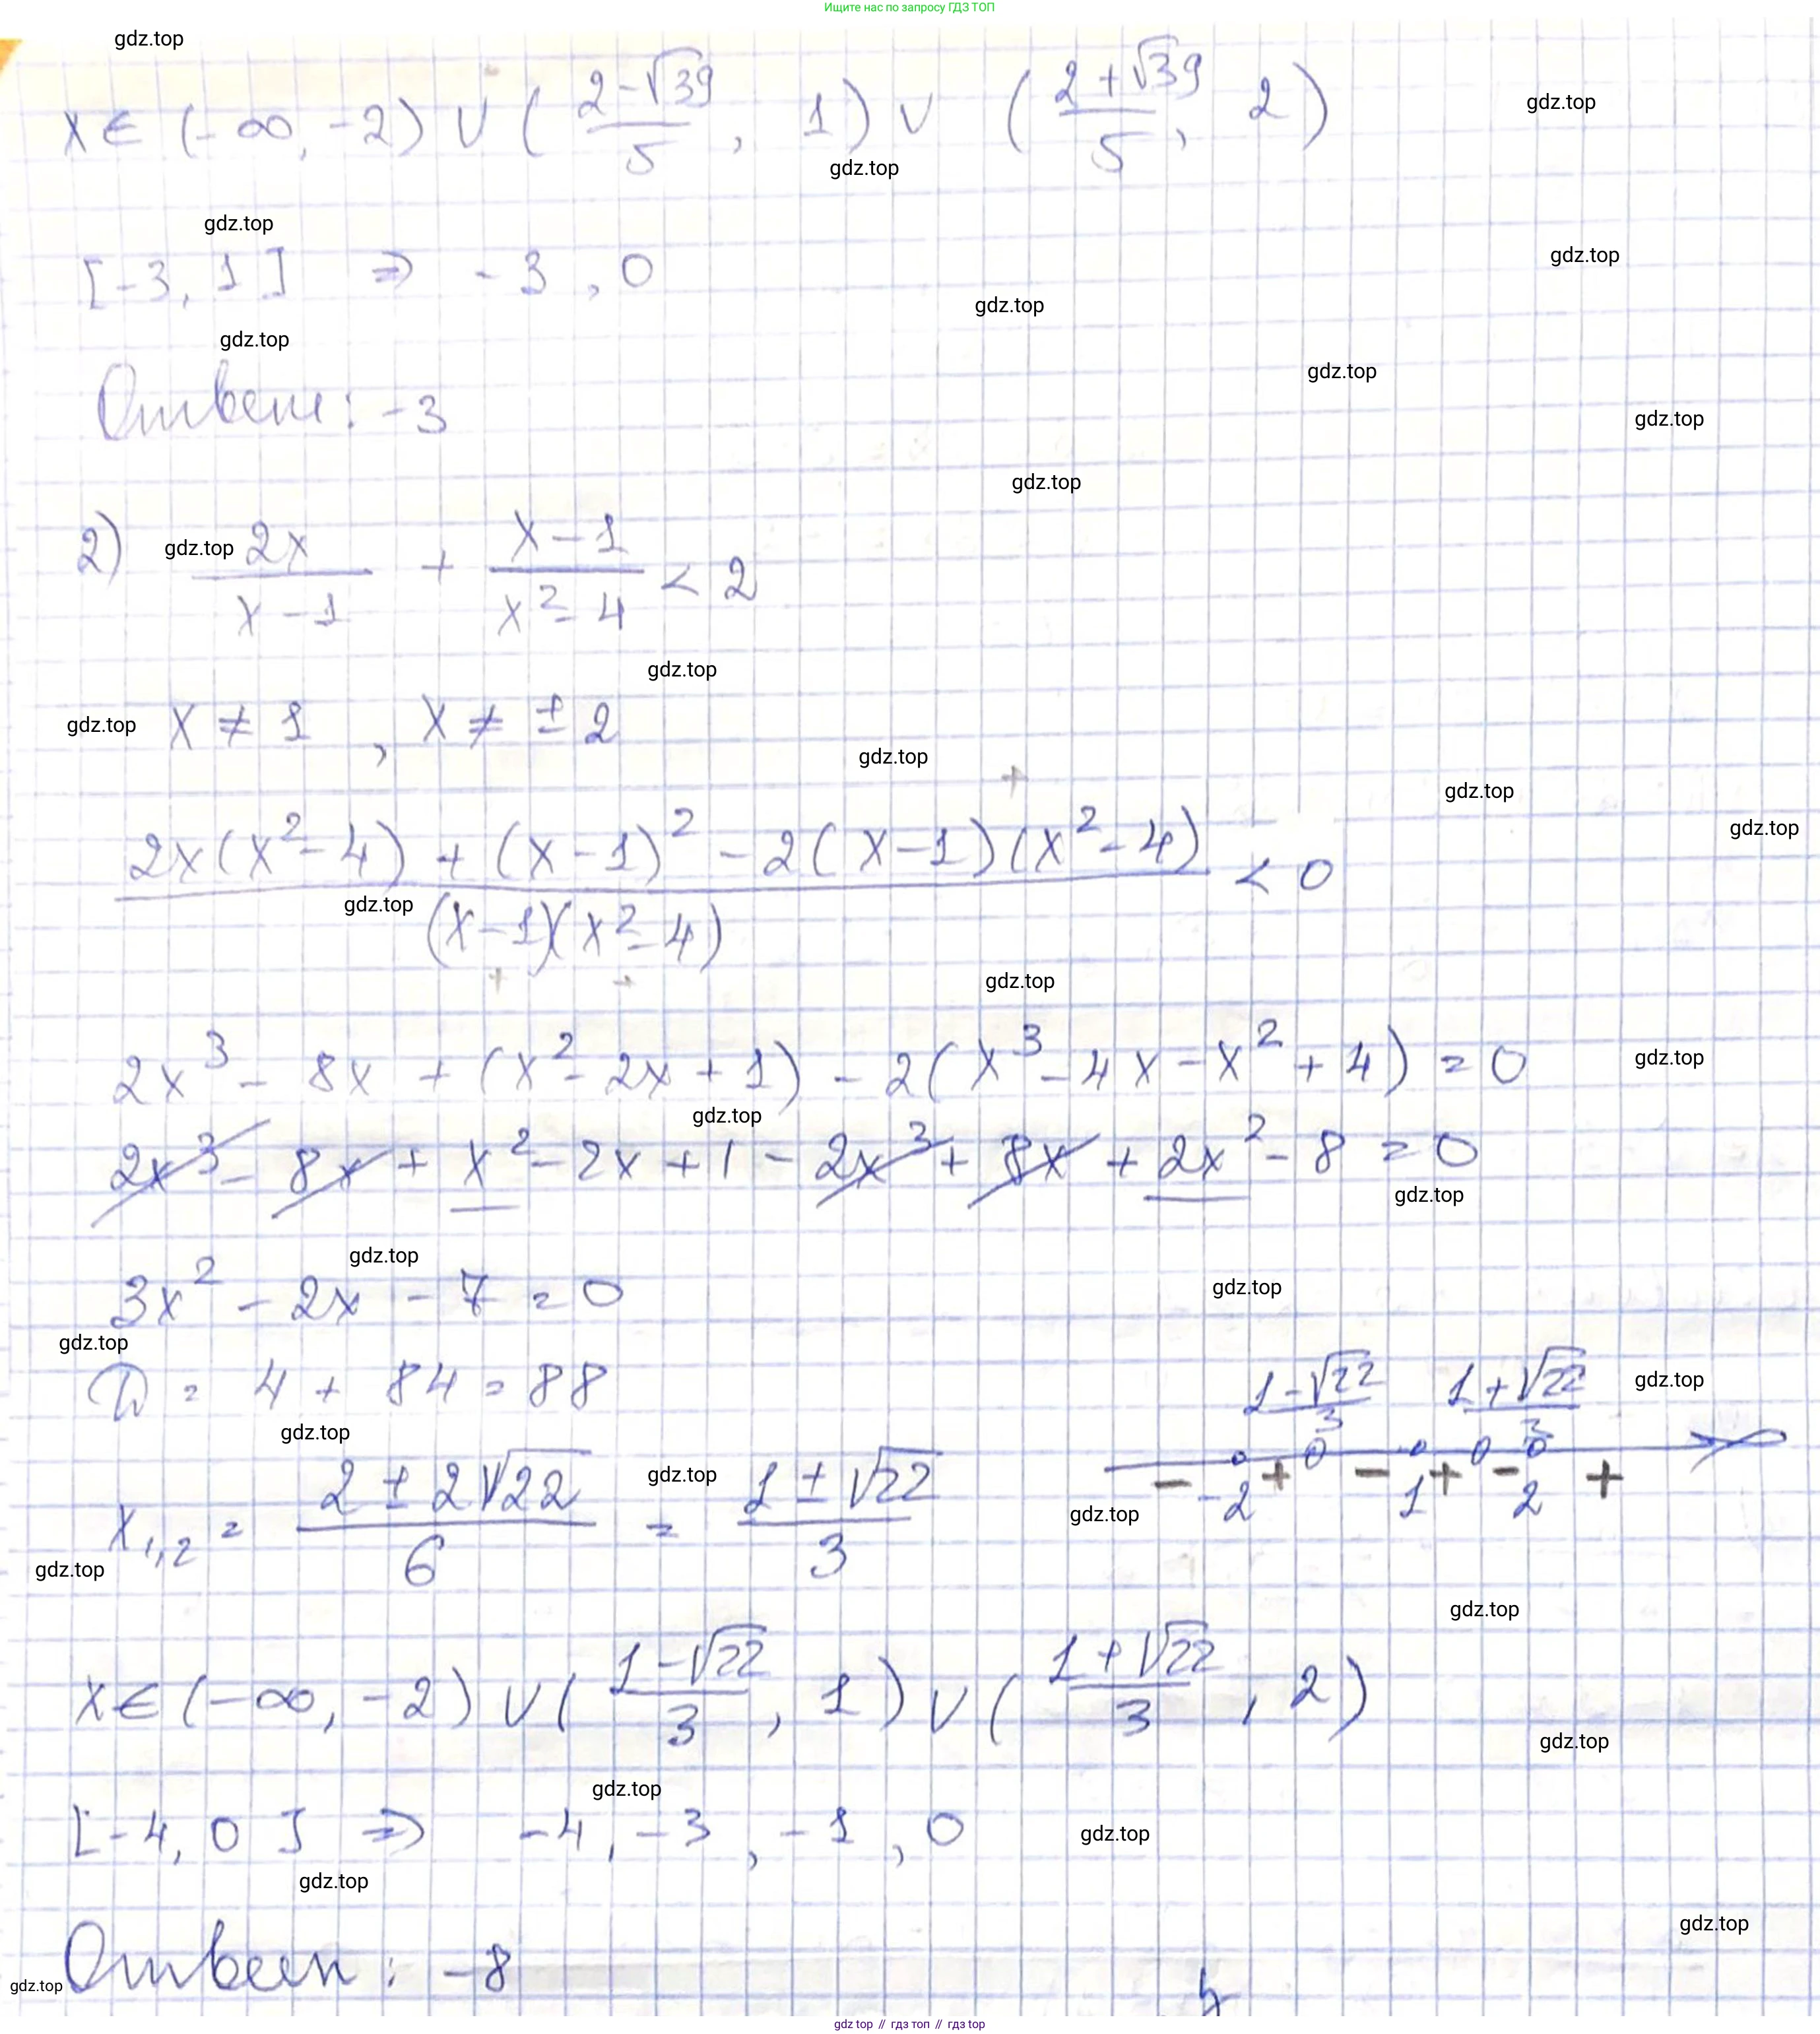 Ищите нас по запросу ГДЗ ТОП
gdz.top
x ∈ (-∞, -2) ∪ ( (2-√39)/5 , 1) ∪ ( (2+√39)/5 , 2)
gdz.top
gdz.top
gdz.top
[-3, 1] ⇒ -3, 0
gdz.top
gdz.top
gdz.top
Ответ: -3
gdz.top
gdz.top
gdz.top
2) 2x/(x-1) + (x-1)/(x²-4) < 2
gdz.top
gdz.top
x ≠ 1 , x ≠ ± 2
gdz.top
gdz.top
gdz.top
gdz.top
(2x(x²-4) + (x-1)² - 2(x-1)(x²-4))/((x-1)(x²-4)) < 0
gdz.top
gdz.top
2x³ - 8x + (x² - 2x + 1) - 2(x³ - 4x - x² + 4) = 0
gdz.top
gdz.top
2x³ - 8x + x² - 2x + 1 - 2x³ + 8x + 2x² - 8 = 0
gdz.top
gdz.top
3x² - 2x - 7 = 0
gdz.top
gdz.top
D = 4 + 84 = 88
gdz.top
gdz.top
(1-√22)/3 (1+√22)/3
- + - + - +
-2 1 2
x₁,₂ = (2 ± 2√22)/6 = (1 ± √22)/3
gdz.top
gdz.top
gdz.top
gdz.top
x ∈ (-∞, -2) ∪ ( (1-√22)/3 , 1) ∪ ( (1+√22)/3 , 2)
gdz.top
gdz.top
[-4, 0] ⇒ -4, -3, -1, 0
gdz.top
gdz.top
gdz.top
Ответ: -8
gdz.top
gdz.top // гдз топ // гдз top